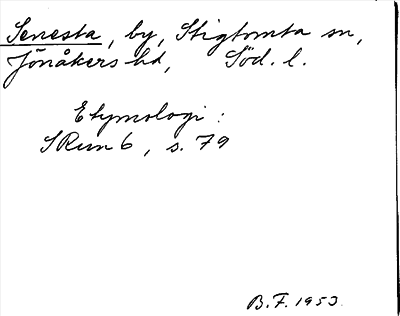 Senesta, by, Stigtomta sn,
Jönåkers hd, Söd. l.
Etymologi:
SRun 6, s. 79
B.F. 1953.